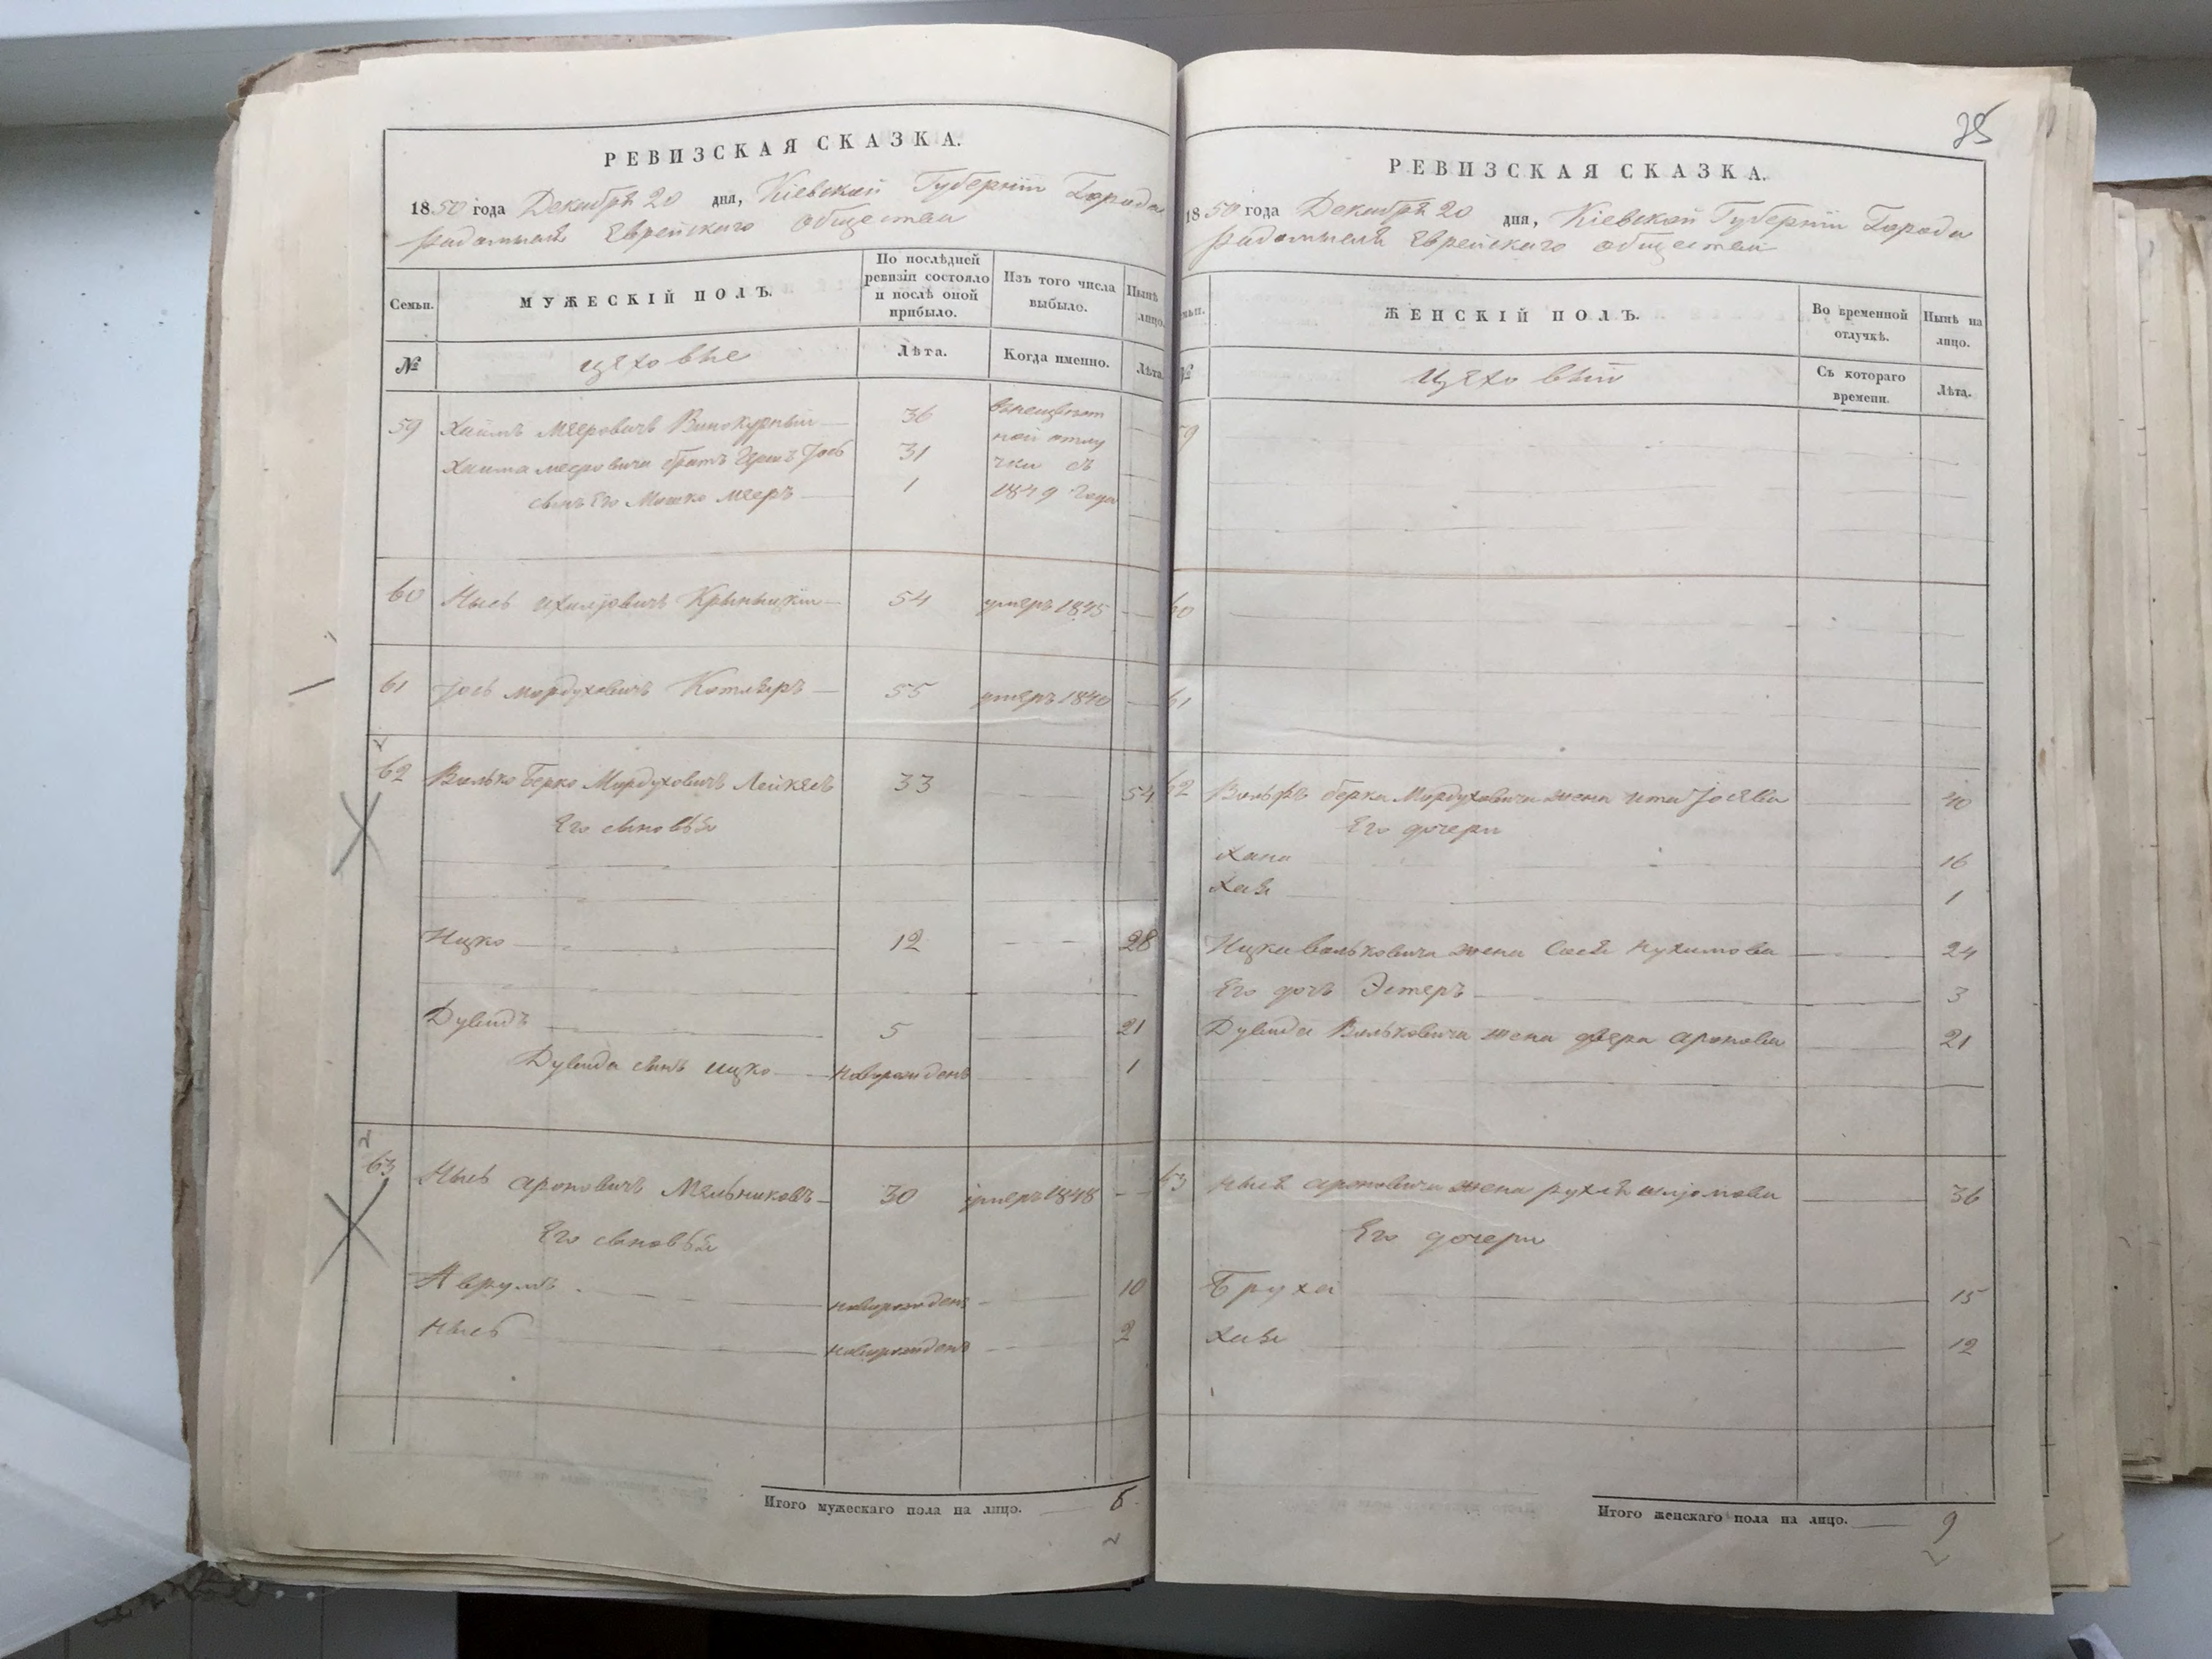 РЕВИЗСКАЯ СКАЗКА.
1850 года Декабря 20 дня, Кіевской Губерніи Города
Радомысля Еврейскаго Общества
Семьи.
МУЖЕСКІЙ ПОЛЪ.
По послѣдней ревизіи состояло и послѣ оной прибыло.
Изъ того числа выбыло.
Нынѣ лицо.
№
цеховые
Лѣта.
Когда именно.
Лѣта.
59 Хаимъ Мееровичъ Винокурный 36
Хаима мееровича братъ Ицко Іосъ 31
сынъ Его Мошко Мееръ 1
отлу
чки съ
1849 года
60 Нысь Крыницкій 54 умеръ 1845
61 Іось Мордуховичъ Котляръ 55 умеръ 1840
62 Волько Берко Мордуховичъ 33 54
Его сыновья
Ицко 12 28
Дувидъ 5 21
Дувида сынъ Ицко новорожденъ 1
63 Нысь Ароновичъ Мельниковъ 30 умеръ 1848
Его сыновья
Аврумъ новорожденъ 10
Нысь новорожденъ 2
Итого мужескаго пола на лицо. 6
35
РЕВИЗСКАЯ СКАЗКА.
1850 года Декабря 20 дня, Кіевской Губерніи Города
Радомысля Еврейскаго общества
ЖЕНСКІЙ ПОЛЪ.
Во временной отлучкѣ.
Нынѣ на лицо.
№
Съ котораго времени.
Лѣта.
59
60
61
62 берка Мордуховича жена Ита Іосева 40
Его дочери
Хана 16
Хая 1
Ицка Вольковича жена Сося Нухимова 24
Его дочь Эстеръ 3
Дувида Вольковича жена двера Аронова 21
63 Ныся Ароновича жена рухля шлјомова 36
Его дочери
Бруха 15
Хая 12
Итого женскаго пола на лицо. 9